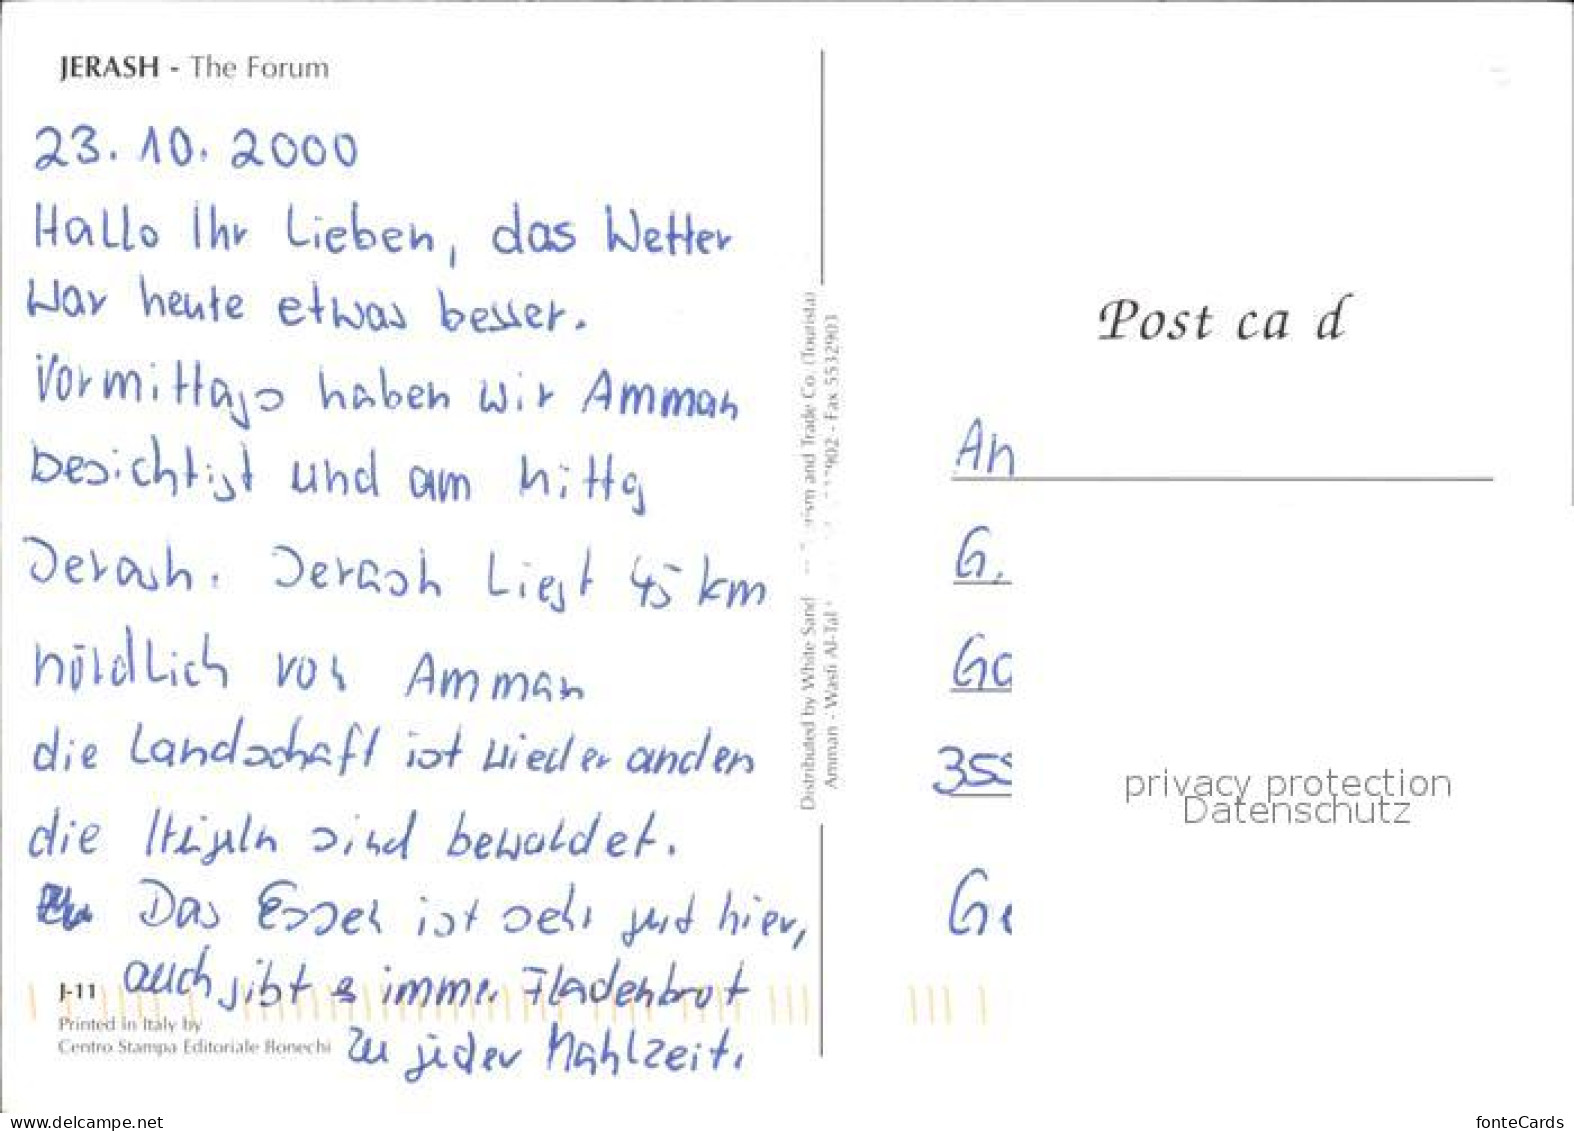 JERASH - The Forum
23.10.2000
Hallo Ihr Lieben, das Wetter
war heute etwas besser.
Vormittags haben wir Amman
besichtigt und am Mittg
Jerash. Jerash liegt 45 km
nördlich von Amman
die Landschaft ist wieder anders
die Hügeln sind bewaldet.
Das Essen ist sehr gut hier,
auch gibt es immer Fladenbrot
zu jeder Mahlzeit.
J-11
Printed in Italy by
Centro Stampa Editoriale Bonechi
Distributed by White Sand rism and Trade Co. (Tourista)
Amman - Wasfi Al-Tal 902 - Fax 5532903
Post ca d
An
G.
Ga
355
Ge
privacy protection
Datenschutz
www.delcampe.net
fonteCards